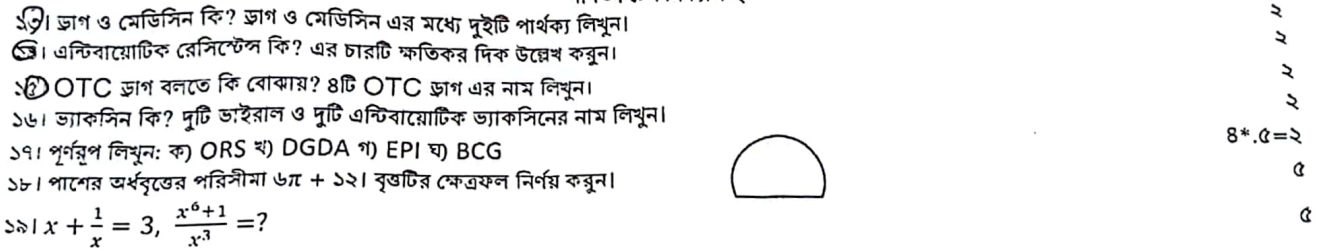 ১৩। ড্রাগ ও মেডিসিন কি? ড্রাগ ও মেডিসিন এর মধ্যে দুইটি পার্থক্য লিখুন। ২
১৪। এন্টিবায়োটিক রেসিস্টেন্স কি? এর চারটি ক্ষতিকর দিক উল্লেখ করুন। ২
১৫। OTC ড্রাগ বলতে কি বোঝায়? ৪টি OTC ড্রাগ এর নাম লিখুন। ২
১৬। ভ্যাকসিন কি? দুটি ভাইরাল ও দুটি এন্টিবায়োটিক ভ্যাকসিনের নাম লিখুন। ২
১৭। পূর্ণরূপ লিখুন: ক) ORS খ) DGDA গ) EPI ঘ) BCG ৪*.৫=২
১৮। পাশের অর্ধবৃত্তের পরিসীমা ৬π + ১২। বৃত্তটির ক্ষেত্রফল নির্ণয় করুন। ৫
১৯। x + 1/x = 3, (x⁶+1)/x³ =? ৫